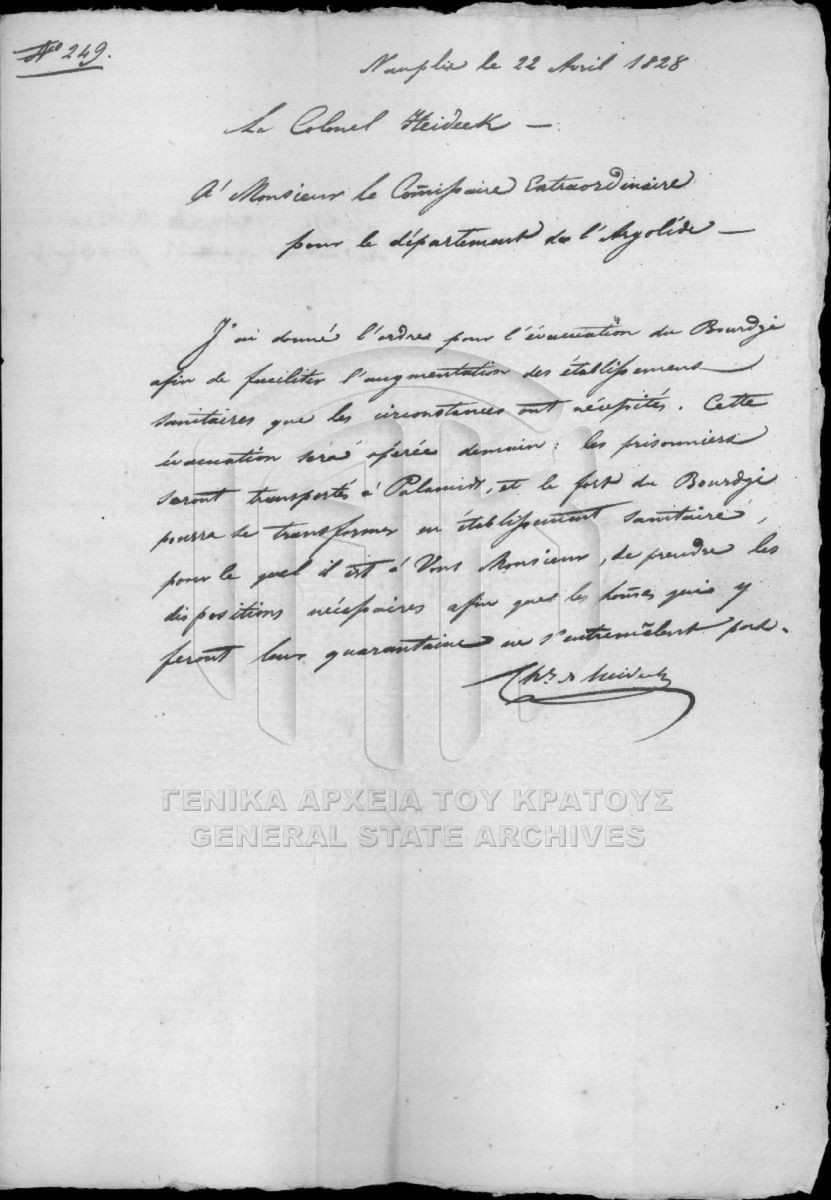 Nº 249.
Nauplie le 22 Avril 1828
Le Colonel Heideck —
A' Monsieur le Com̃issaire Extraordinaire
pour le département de l'Argolide —
J'ai donné l'ordre pour l'évacuation du Bourdgi
afin de faciliter l'augmentation des établissemens
sanitaires que les circonstances ont nécessités. Cette
évacuation sera opérée demain: les prisonniers
seront transportés à Palamide, et le fort du Bourdgi
pourra se transformer en établissement sanitaire,
pour le quel il est à Vous Monsieur, de prendre les
dispositions nécessaires afin que les hom̃es qui y
feront leur quarantaine ne s'entremêlent
Heideck
ΓΕΝΙΚΑ ΑΡΧΕΙΑ ΤΟΥ ΚΡΑΤΟΥΣ
GENERAL STATE ARCHIVES